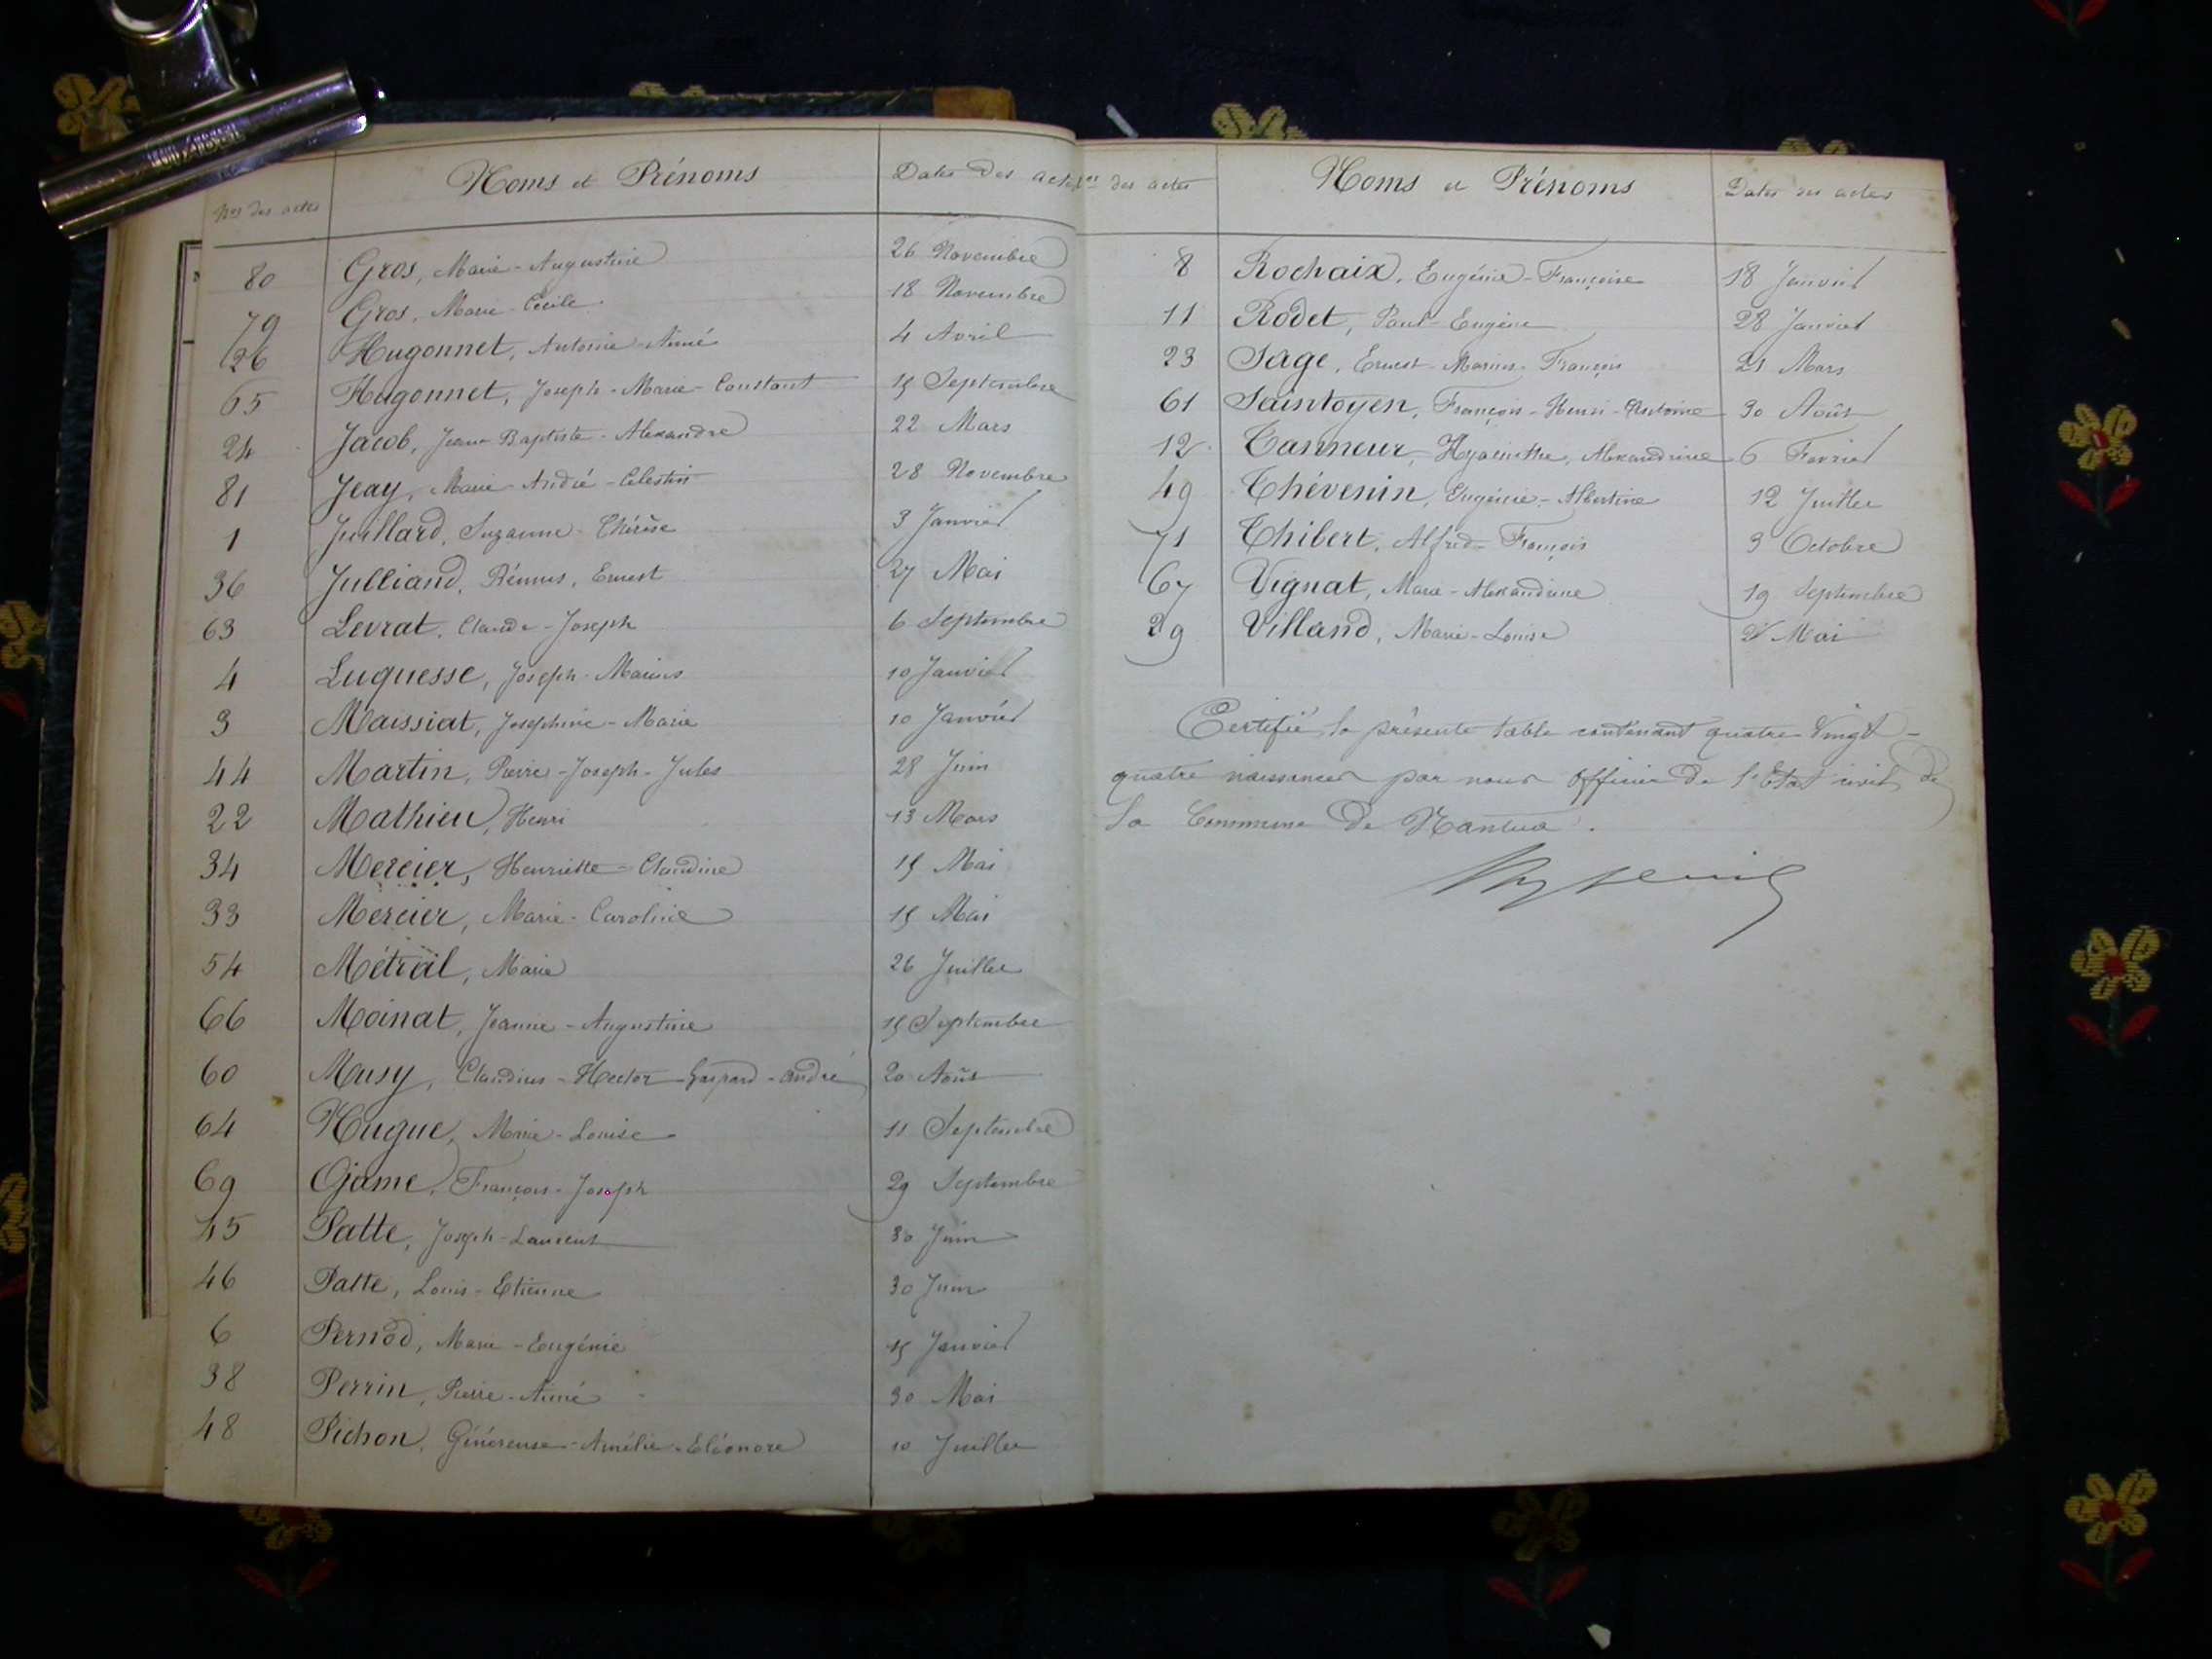 Nos des actes Noms et Prénoms Dates des actes
80 Gros, Marie-Augustine 26 Novembre
79 Gros, Marie-Cécile 18 Novembre
26 Hugonnet, Antoine-Aimé 4 Avril
65 Hugonnet, Joseph-Marie-Constant 15 Septembre
24 Jacob, Jean-Baptiste-Alexandre 22 Mars
81 Jeay, Marie-André-Célestin 28 Novembre
1 Juillard, Suzanne-Thérèse 3 Janvier
36 Julliand, Rémus, Ernest 27 Mai
63 Levrat, Claude-Joseph 6 Septembre
4 Luquesse, Joseph-Marius 10 Janvier
3 Maissiat, Joséphine-Marie 10 Janvier
44 Martin, Pierre-Joseph-Jules 28 Juin
22 Mathieu, Henri 13 Mars
34 Mercier, Henriette-Claudine 15 Mai
33 Mercier, Marie-Caroline 15 Mai
54 Métral, Marie 26 Juillet
66 Moinat, Jeanne-Augustine 15 Septembre
60 Musy, Claudius-Hector-Gaspard-André 20 Août
64 Nugue, Marie-Louise 11 Septembre
69 Ojame, François-Joseph 29 Septembre
45 Patte, Joseph-Laurent 30 Juin
46 Patte, Louis-Etienne 30 Juin
6 Pernod, Marie-Eugénie 15 Janvier
38 Perrin, Pierre-Aimé 30 Mai
48 Pichon, Généreuse-Amélie-Eléonore 10 Juillet
Nos des actes Noms et Prénoms Dates des actes
8 Rochaix, Eugénie-Françoise 18 Janvier
11 Rodet, Paul-Eugène 28 Janvier
23 Sage, Ernest-Marius-François 21 Mars
61 Saintoyen, François-Henri-Antoine 30 Août
12 Tanneur, Hyacinthe, Alexandrine 6 Février
49 Thévenin, Eugénie-Albertine 12 Juillet
71 Thibert, Alfred-François 3 Octobre
67 Vignat, Marie-Alexandrine 19 Septembre
29 Villand, Marie-Louise 2 Mai
Certifié la présente table contenant quatre vingt-
quatre naissances par nous officier de l'Etat civil de
la Commune de Nantua.